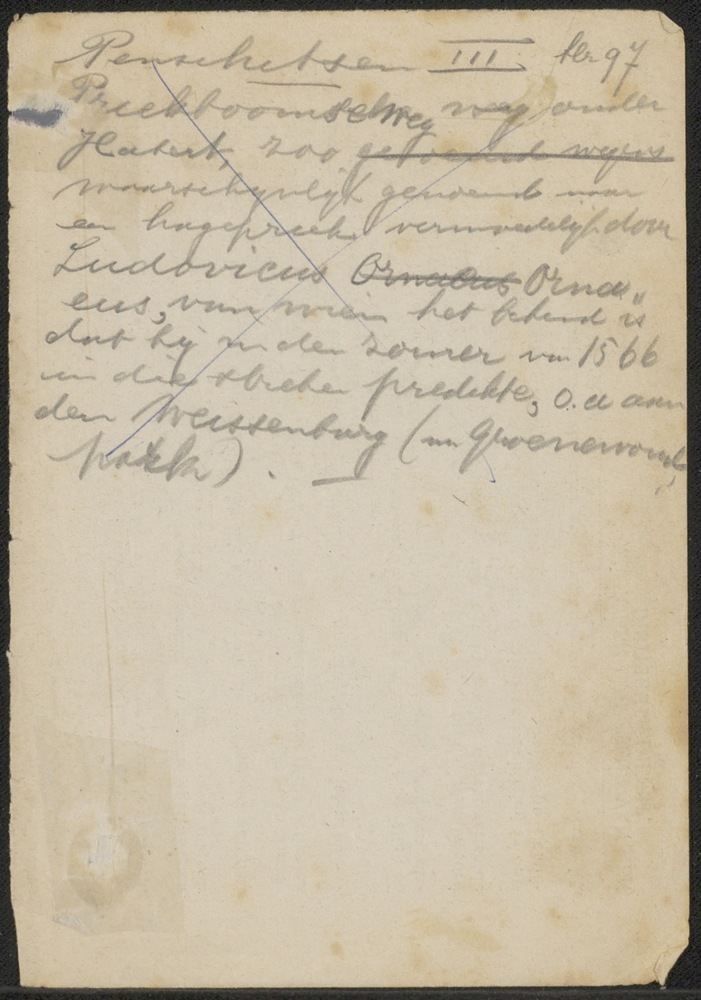 Penschetsen III blz 97
Preekboomscheweg weg onder
Hatert, zoo genoemd wegens
waarschijnlijk genoemd naar
een hagepreek vermoedelijk door
Ludovicus Ornaeus Ornae„
eus, van wien het bekend is
dat hij in den zomer van 1566
in die streken predikte, o.a aan
den Weissenburg (nu Groenewoud„
park).